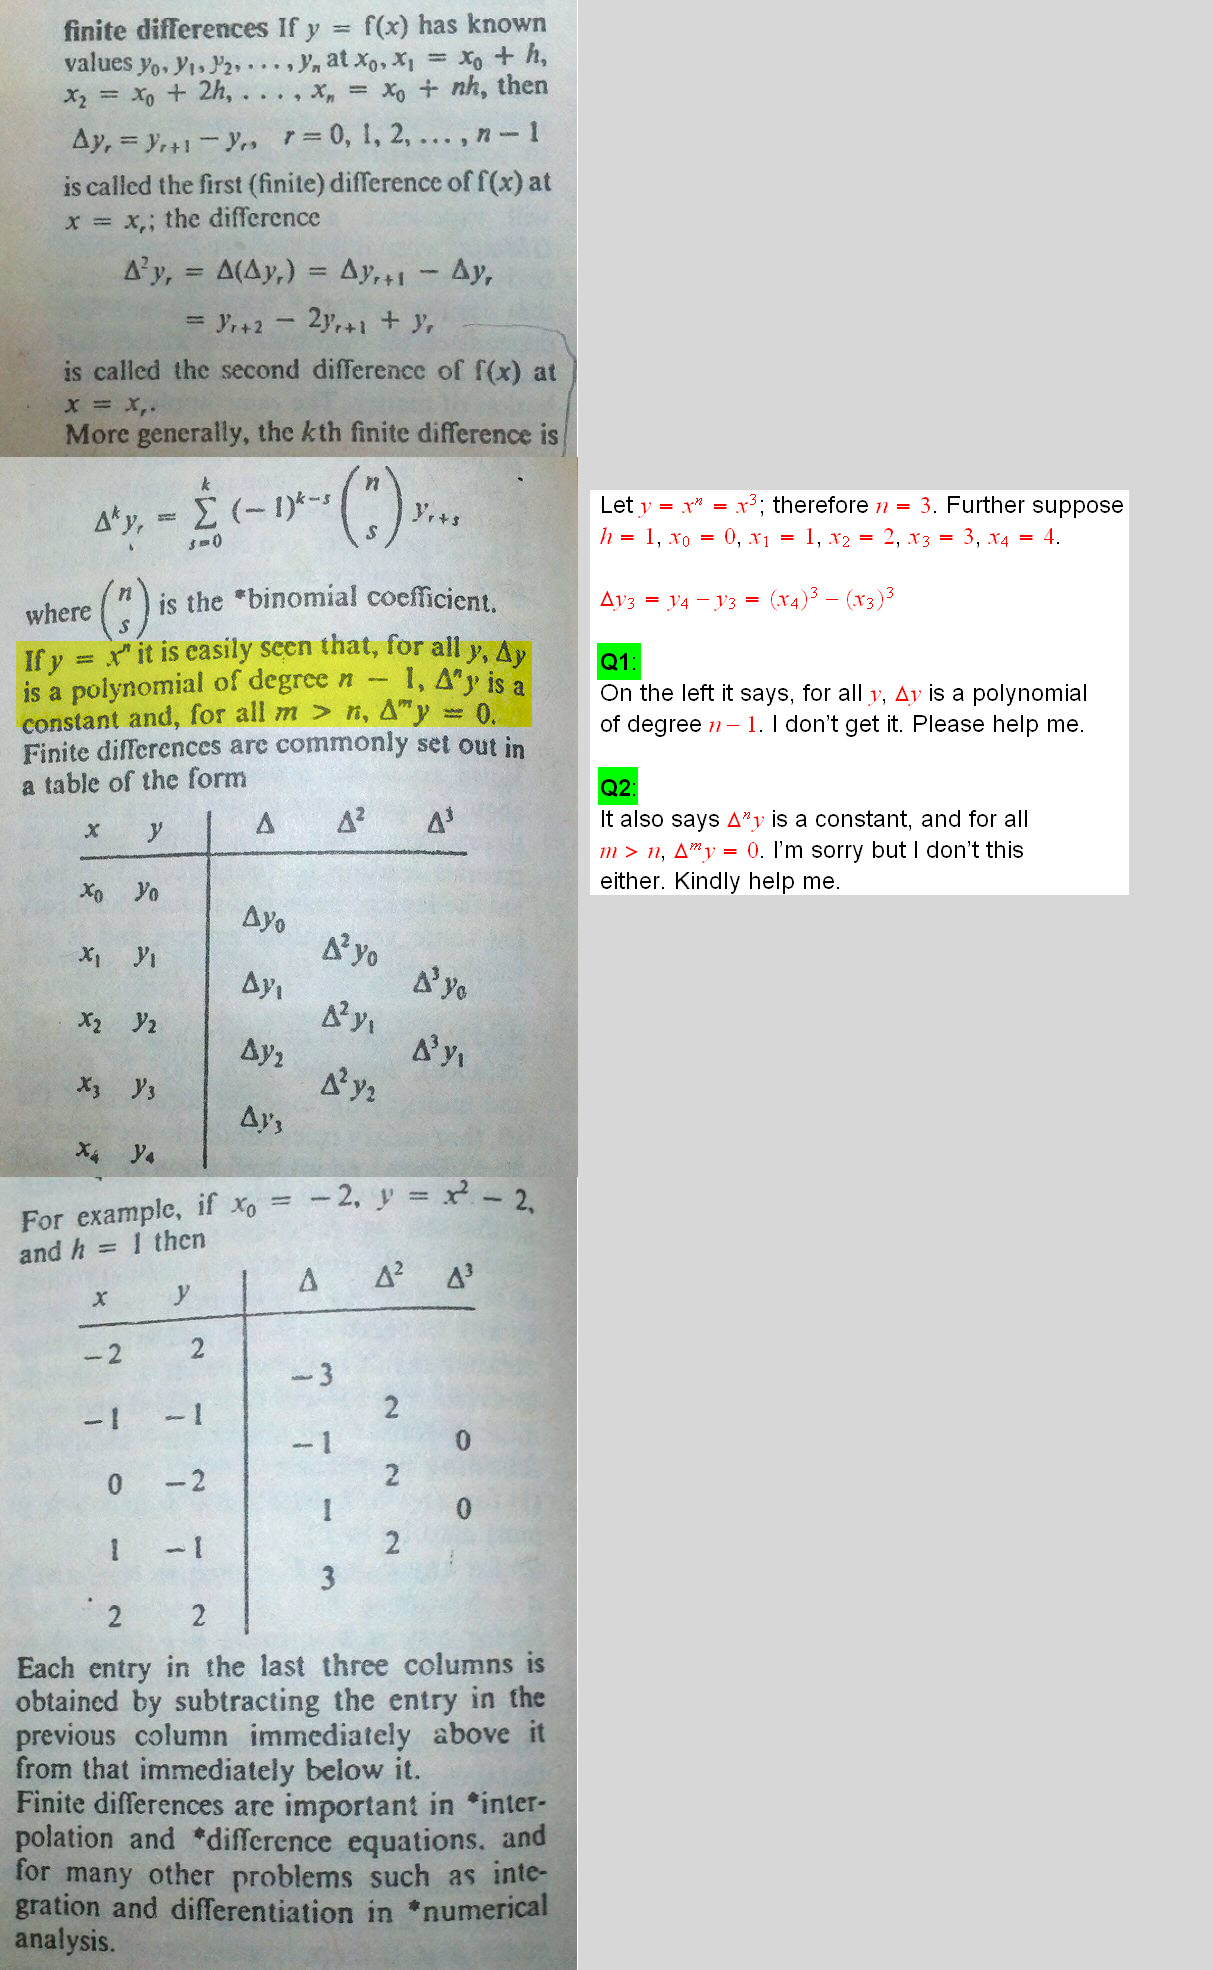 finite differences If y = f(x) has known
values y₀, y₁, y₂, . . . , yₙ at x₀, x₁ = x₀ + h,
x₂ = x₀ + 2h, . . . , xₙ = x₀ + nh, then
Δyᵣ = yᵣ₊₁ − yᵣ, r = 0, 1, 2, . . . , n − 1
is called the first (finite) difference of f(x) at
x = xᵣ; the difference
Δ²yᵣ = Δ(Δyᵣ) = Δyᵣ₊₁ − Δyᵣ
= yᵣ₊₂ − 2yᵣ₊₁ + yᵣ
is called the second difference of f(x) at
x = xᵣ.
More generally, the kth finite difference is
Δᵏyᵣ = ∑ₛ₌₀ᵏ (−1)ᵏ⁻ˢ (n s) yᵣ₊ₛ
where (n s) is the *binomial coefficient.
If y = xⁿ it is easily seen that, for all y, Δy
is a polynomial of degree n − 1, Δⁿy is a
constant and, for all m > n, Δᵐy = 0.
Finite differences are commonly set out in
a table of the form
x y Δ Δ² Δ³
x₀ y₀
Δy₀
x₁ y₁ Δ²y₀
Δy₁ Δ³y₀
x₂ y₂ Δ²y₁
Δy₂ Δ³y₁
x₃ y₃ Δ²y₂
Δy₃
x₄ y₄
For example, if x₀ = −2, y = x² − 2,
and h = 1 then
x y Δ Δ² Δ³
−2 2
−3
−1 −1 2
−1 0
0 −2 2
1 0
1 −1 2
3
2 2
Each entry in the last three columns is
obtained by subtracting the entry in the
previous column immediately above it
from that immediately below it.
Finite differences are important in *inter-
polation and *difference equations. and
for many other problems such as inte-
gration and differentiation in *numerical
analysis.
Let y = xⁿ = x³; therefore n = 3. Further suppose
h = 1, x₀ = 0, x₁ = 1, x₂ = 2, x₃ = 3, x₄ = 4.
Δy₃ = y₄ − y₃ = (x₄)³ − (x₃)³
Q1:
On the left it says, for all y, Δy is a polynomial
of degree n − 1. I don't get it. Please help me.
Q2:
It also says Δⁿy is a constant, and for all
m > n, Δᵐy = 0. I'm sorry but I don't this
either. Kindly help me.